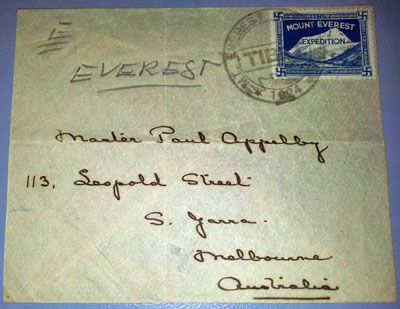 E
EVEREST
MOUNT EVEREST
EXPEDITION
1924
Master Paul Appelby
113, Leopold Street
S. Yarra.
Melbourne
Australia